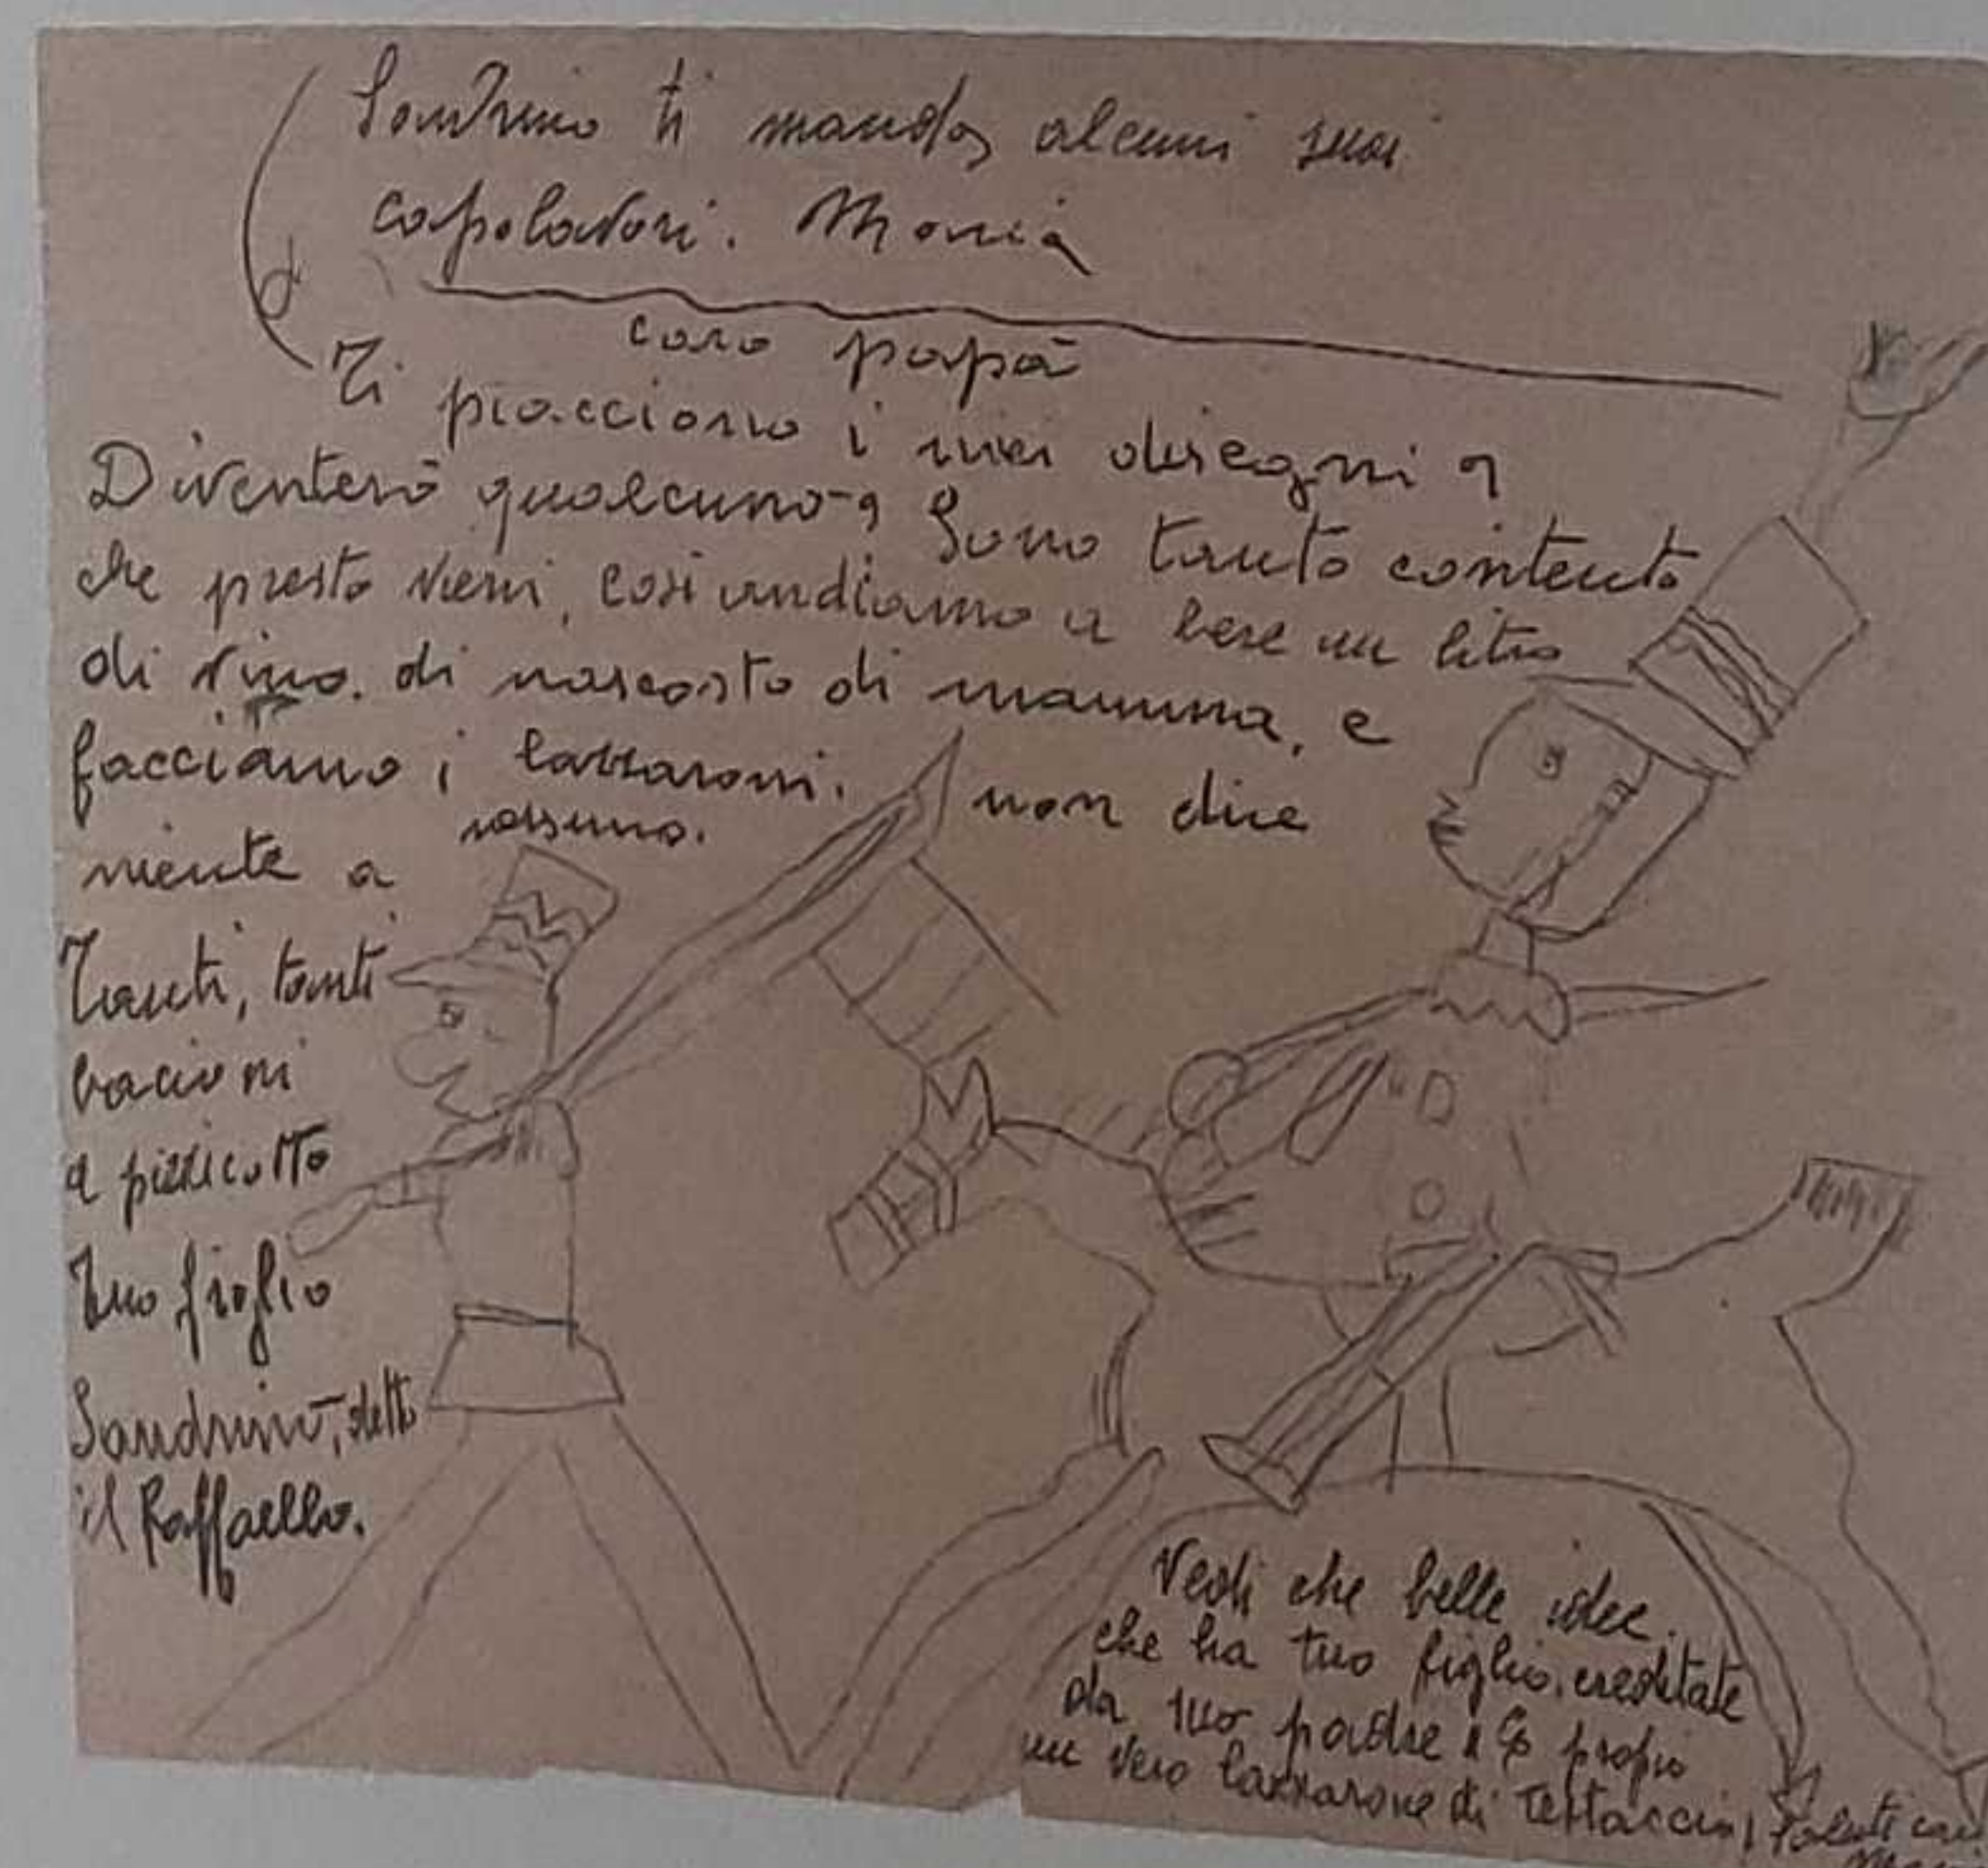 Sandrino ti manda alcuni suoi
capolavori. Maria
caro papà
Ti piacciono i miei disegni?
Diventerò qualcuno? Sono tanto contento
che presto vieni, così andiamo a bere un litro
di vino. di nascosto di mamma, e
facciamo i lazzaroni. non dire
niente a nessuno.
Tanti, tanti
bacioni
a pizzicotto
Tuo figlio
Sandrino, detto
il Raffaello.
Vedi che belle idee
che ha tuo figlio. ereditate
da suo padre! È propio
un vero lazzarone di Testaccio! Saluti cari